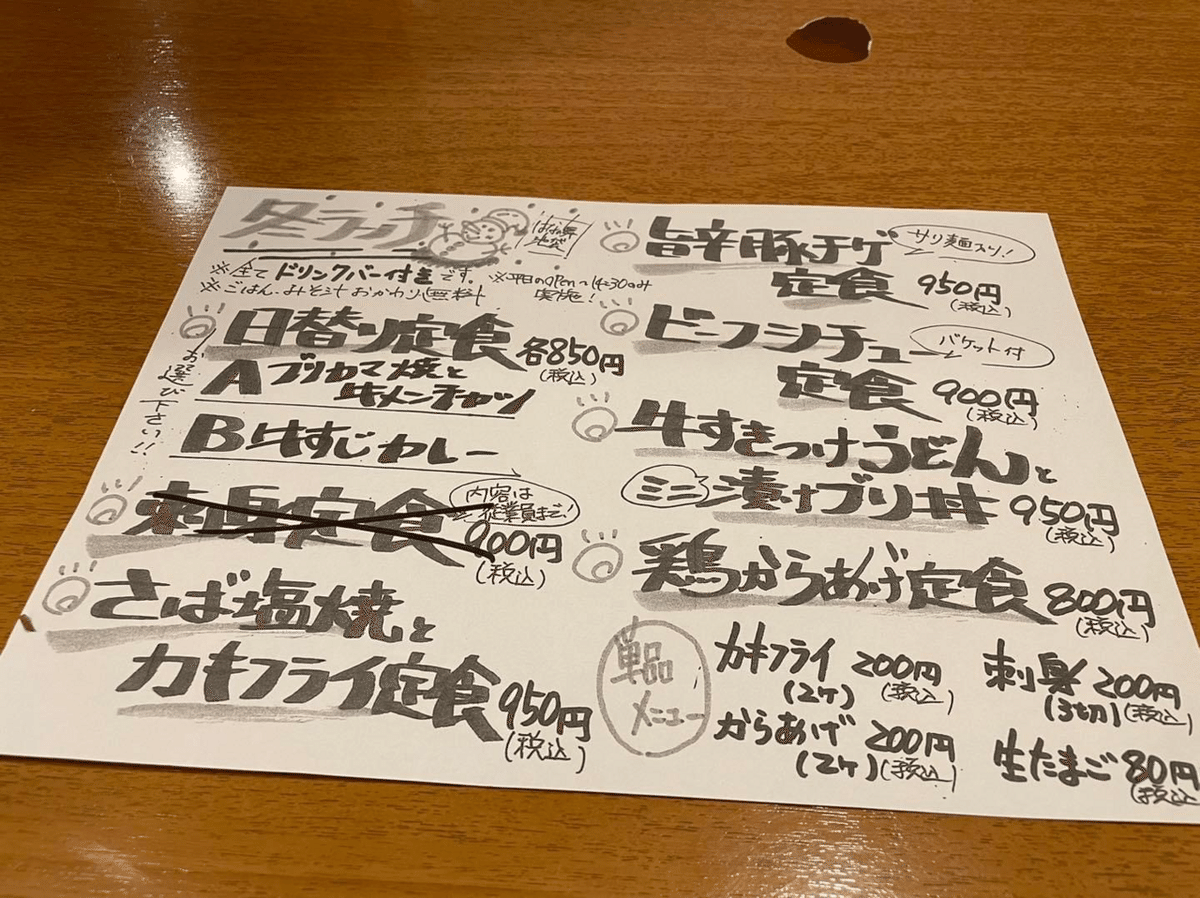 冬ランチ
はなの舞
池袋
※全てドリンクバー付きです。
※ごはん、みそ汁おかわり無料
※平日のopen～14:30のみ
実施!
日替り定食 各850円
(税込)
お選び下さい!!
A ブリカマ焼と
牛メンチカツ
B 牛すじカレー
刺身定食 900円
(税込)
内容は
従業員まで!
さば塩焼と
カキフライ定食 950円
(税込)
旨辛豚チゲ
定食 950円
(税込)
サリ麺入り!
ビーフシチュー
定食 900円
(税込)
バケット付
牛すきつけうどんと
ミニ漬けブリ丼 950円
(税込)
鶏からあげ定食 800円
(税込)
単品
メニュー
カキフライ 200円
(2ヶ) (税込)
からあげ 200円
(2ヶ) (税込)
刺身 200円
(3切) (税込)
生たまご 80円
(税込)